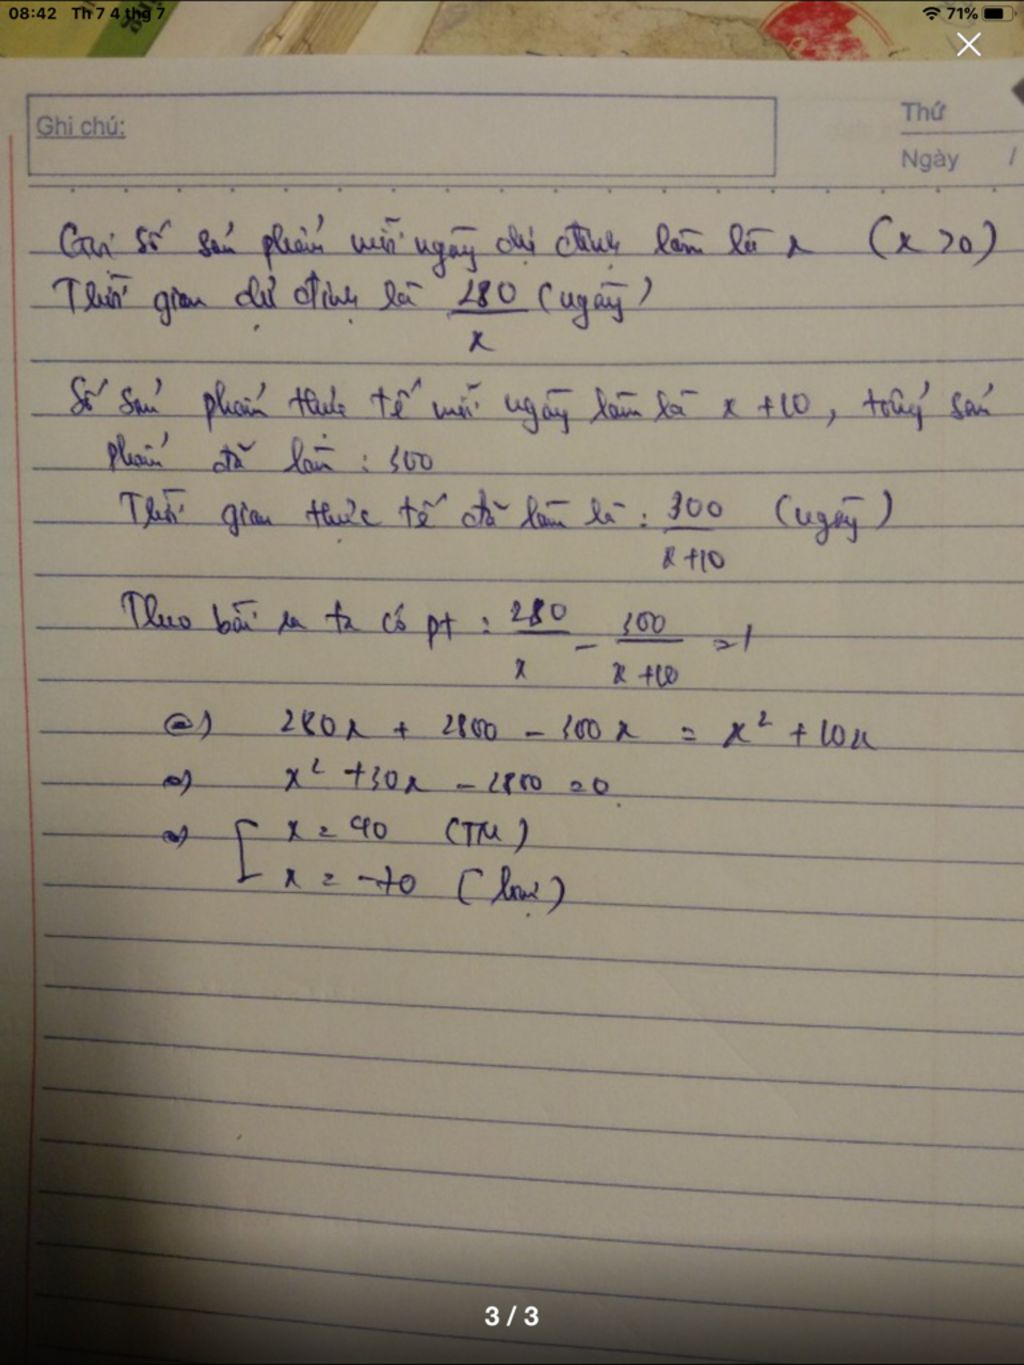 08:42 Th 7 4 thg 7 71%
Ghi chú:
Thứ
Ngày /
Gọi số sản phẩm mỗi ngày dự định làm là x (x >0)
Thời gian dự định là 280/x (ngày)
Số sản phẩm thực tế mỗi ngày làm là x +10, tổng sản
phẩm đã làm : 300
Thời gian thực tế đã làm là : 300/x+10 (ngày)
Theo bài ra ta có pt : 280/x - 300/x+10 =1
<=> 280x + 2800 - 300x = x² + 10x
<=> x² +30x - 2800 =0
<=> [ x = 40 (TM)
x = -70 (loại)
3 / 3